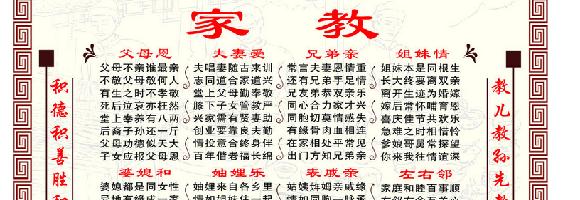 家教
父母恩
父母不亲谁最亲
不敬父母敬何人
有生之时不孝敬
死后泣哀亦枉然
堂上奉养有八两
后裔子孙还一斤
父母功德似天大
子女应报父母恩
夫妻爱
夫唱妻随古来训
志同道合家道兴
堂上父母勤奉敬
膝下子女管教严
兴家需有贤妻助
创业要靠良夫勤
情投意合终身伴
百年偕老福长绵
兄弟亲
常言夫妻恩情重
还有兄弟手足情
兄友弟恭双亲乐
同心合力家才兴
同胞切莫情感失
有缘骨肉血相连
在家相处平常见
出门方知兄弟亲
姐妹情
姐妹本是同根生
长大终要离双亲
离开生途为婚嫁
嫁后常怀哺育恩
喜庆佳节共欢乐
急难之时相惜怜
爹娘哥舅常探望
你来我往情谊深
婆媳和
婆媳都是同女性
妯娌乐
妯娌来自各乡里
表戚亲
姑姨姊姆亲戚缘
左右邻
家庭和睦百事顺
积德积善胜积
教儿教孙先教